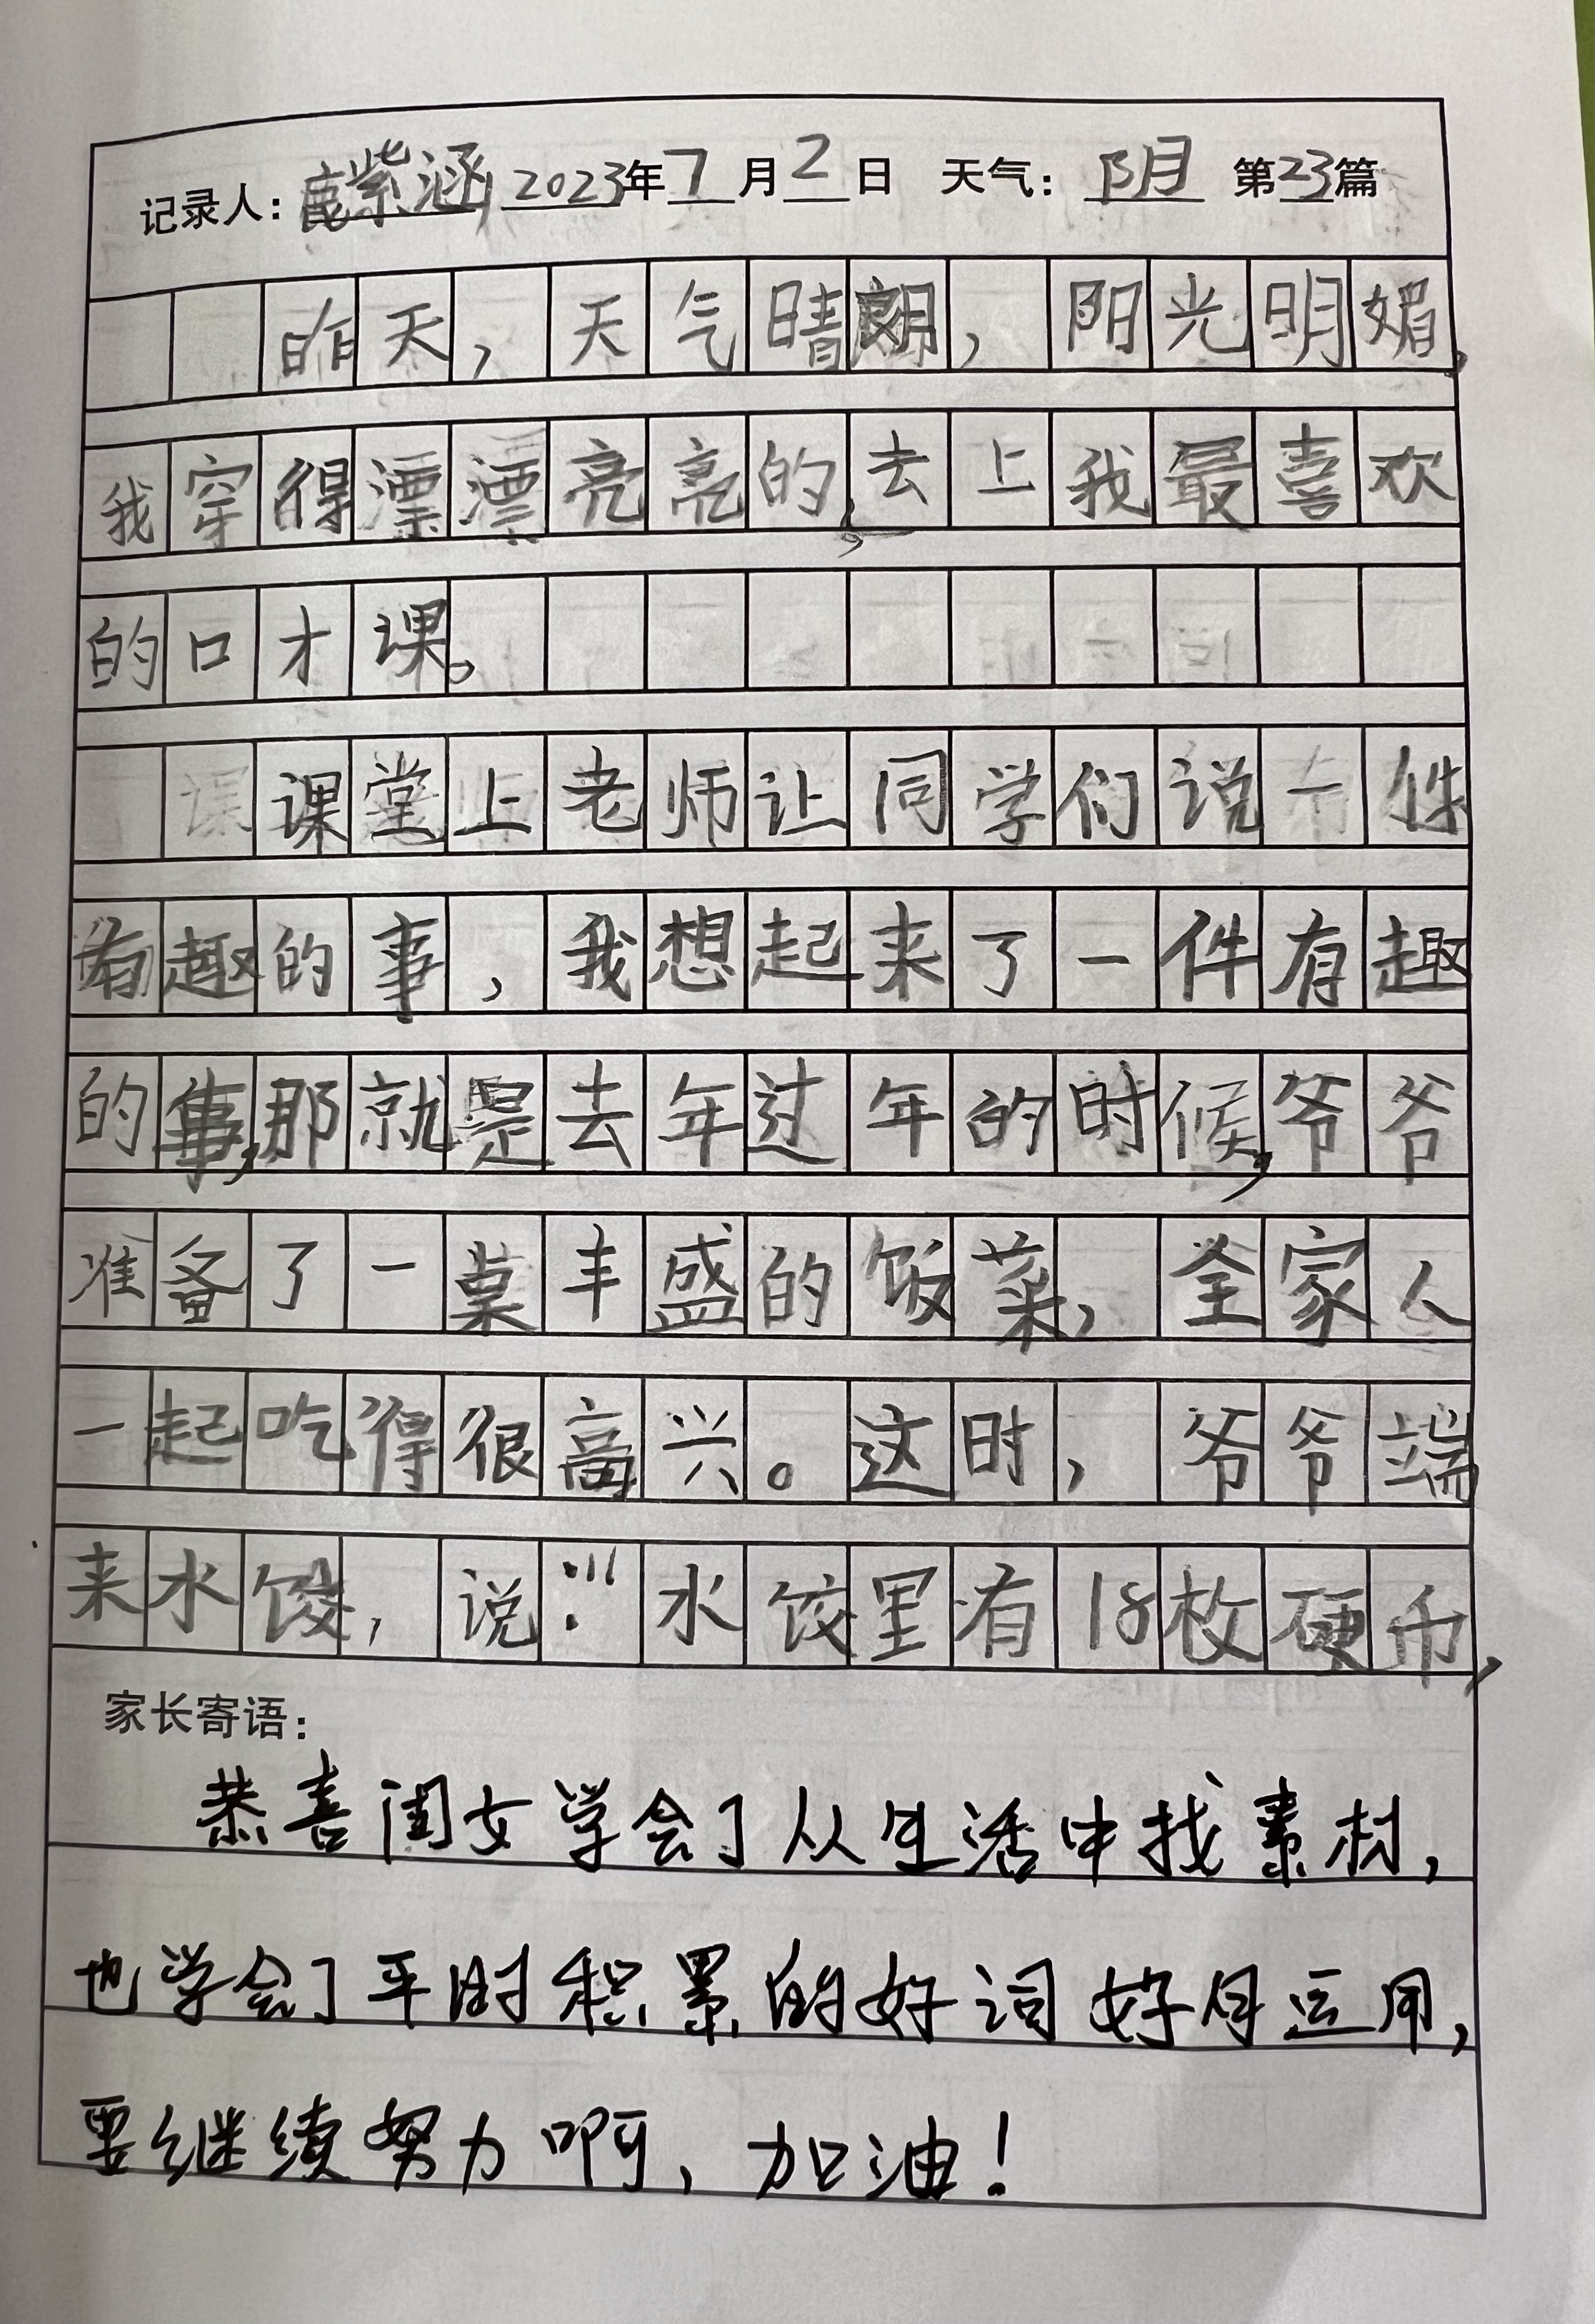 记录人：鹿紫涵 2023年7月2日 天气：阴 第23篇
昨天，天气晴朗，阳光明媚，
我穿得漂漂亮亮的，去上我最喜欢
的口才课。
课堂上老师让同学们说一件
有趣的事，我想起来了一件有趣
的事，那就是去年过年的时候，爷爷
准备了一桌丰盛的饭菜，全家人
一起吃得很高兴。这时，爷爷端
来水饺，说：“水饺里有18枚硬币，
家长寄语：
恭喜闺女学会了从生活中找素材，
也学会了平时积累的好词好句运用，
要继续努力啊，加油！